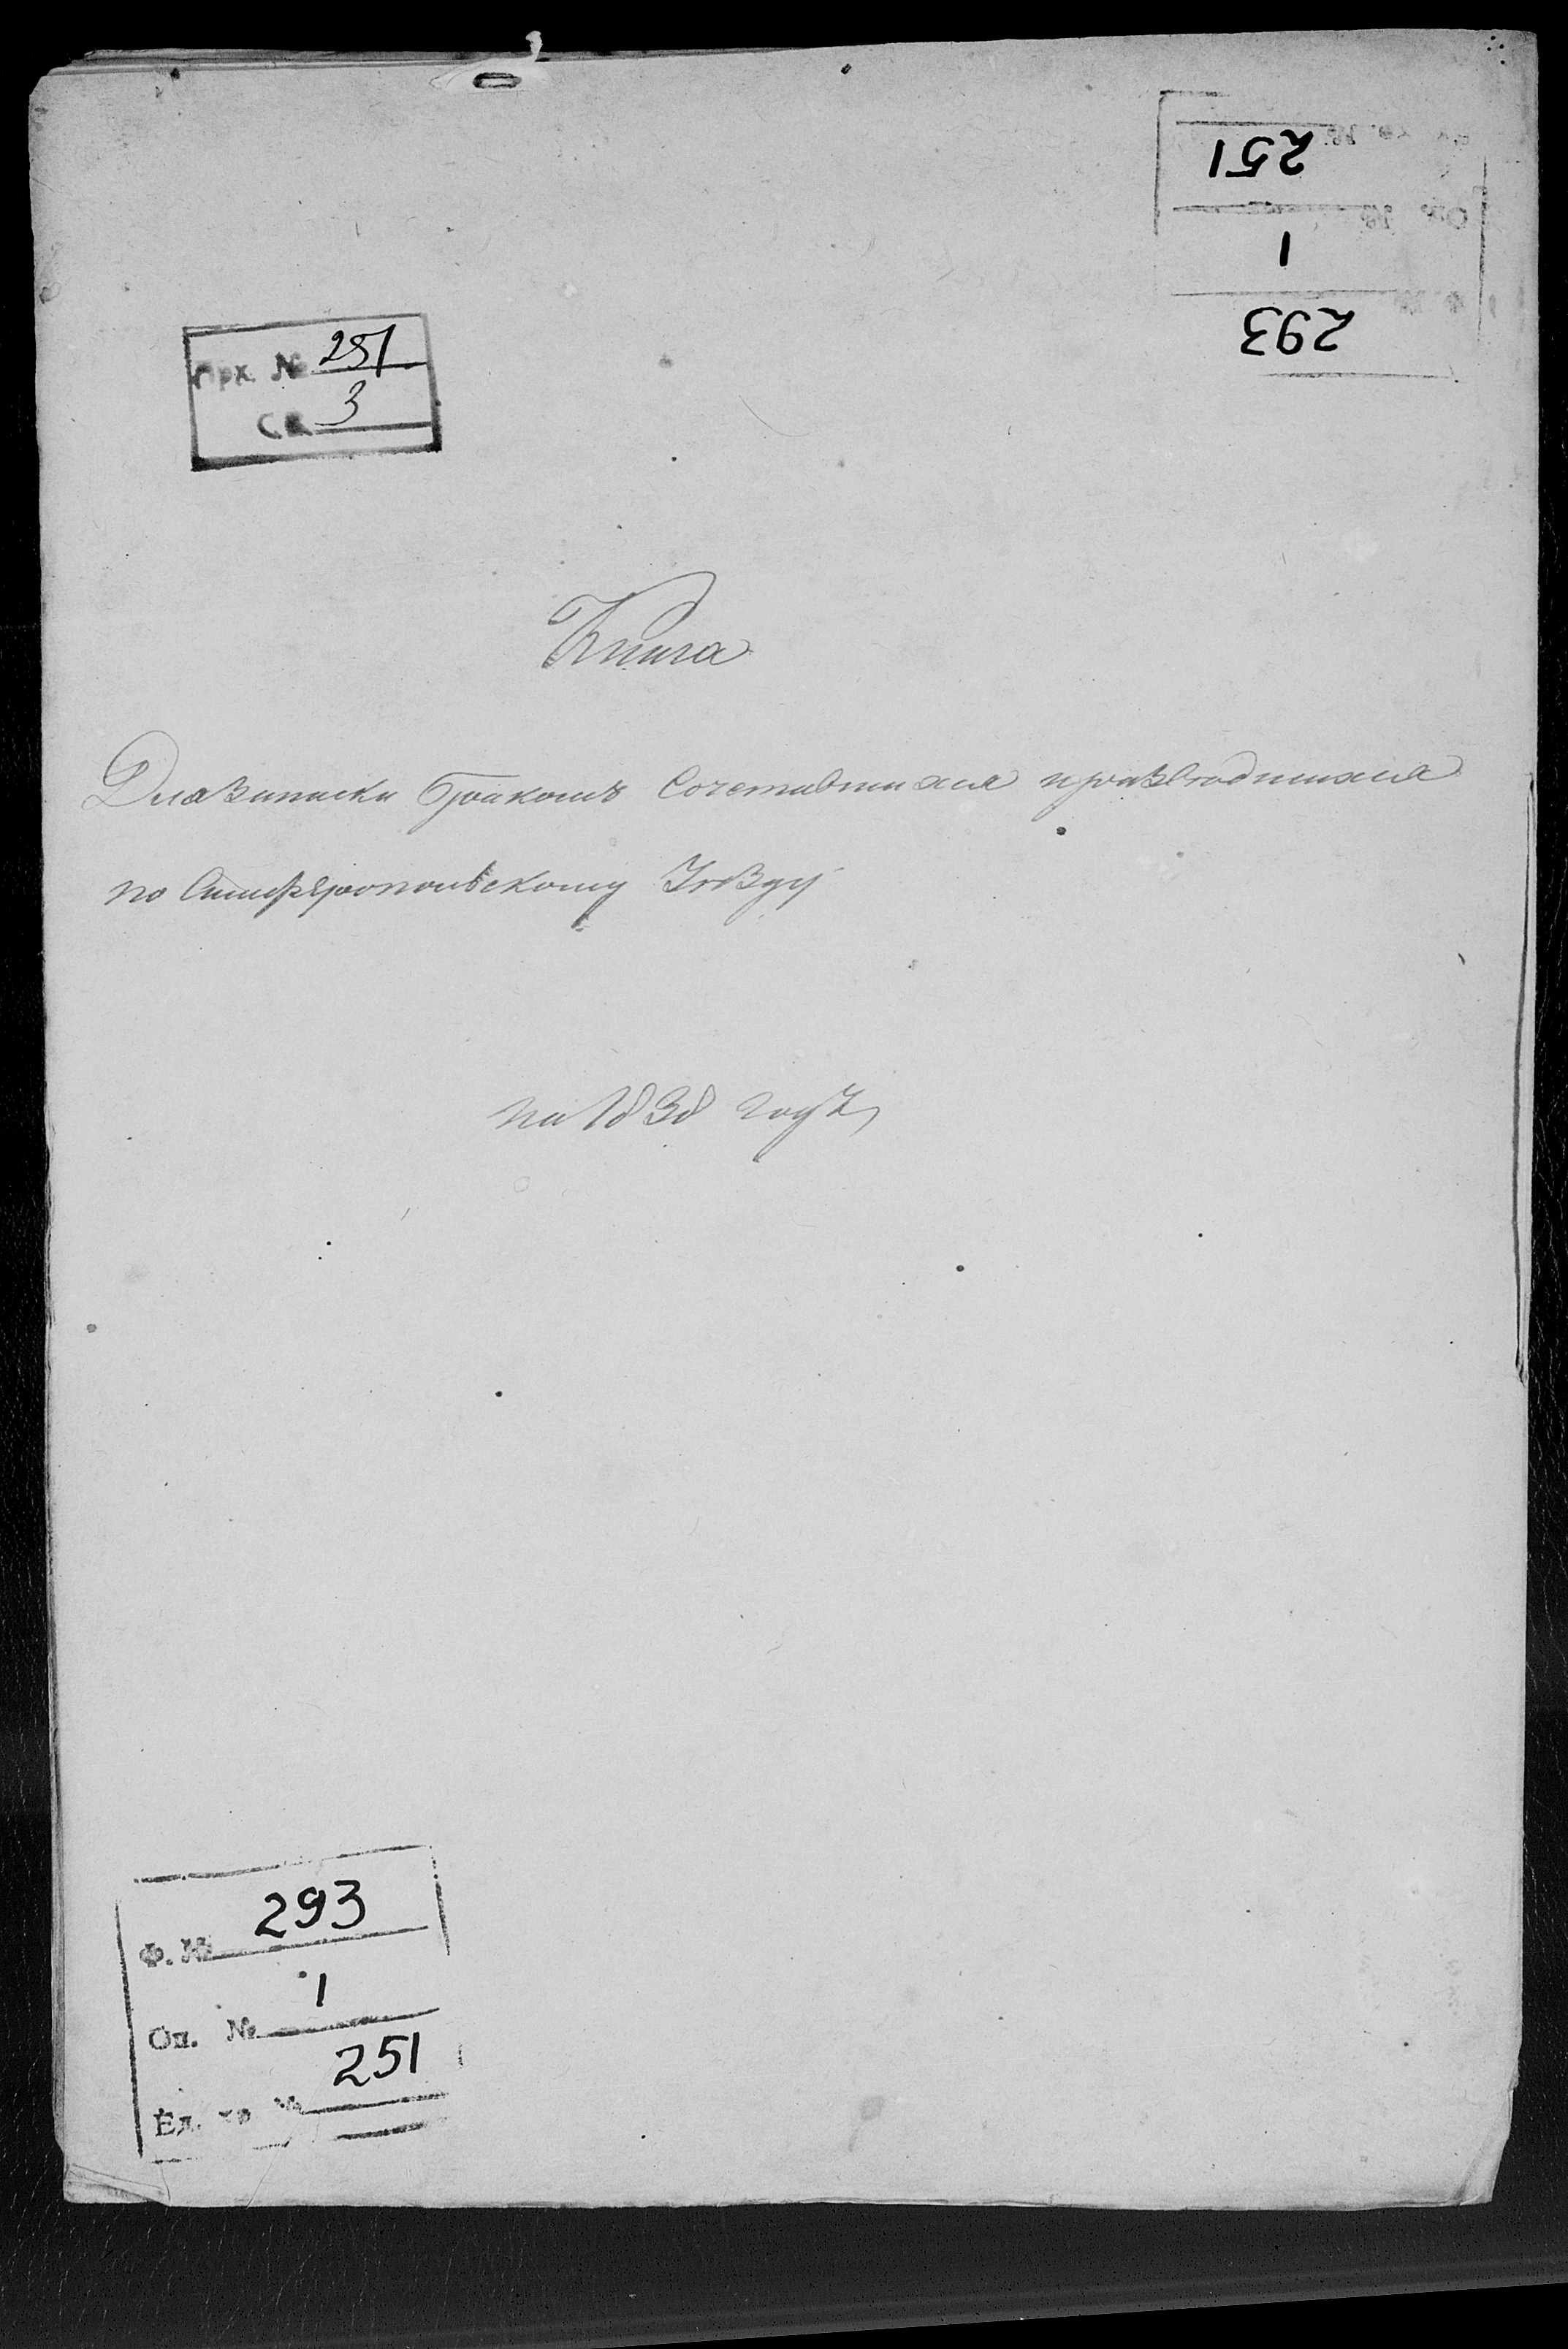 251
1
293
Арх. № 251
Св 3
Книга
Для записки браком Сочетавшихся и разводшихся
по Симферопольскому Уѣзду
на 1838 годъ
Ф. № 293
Оп. № 1
Ед. хр № 251